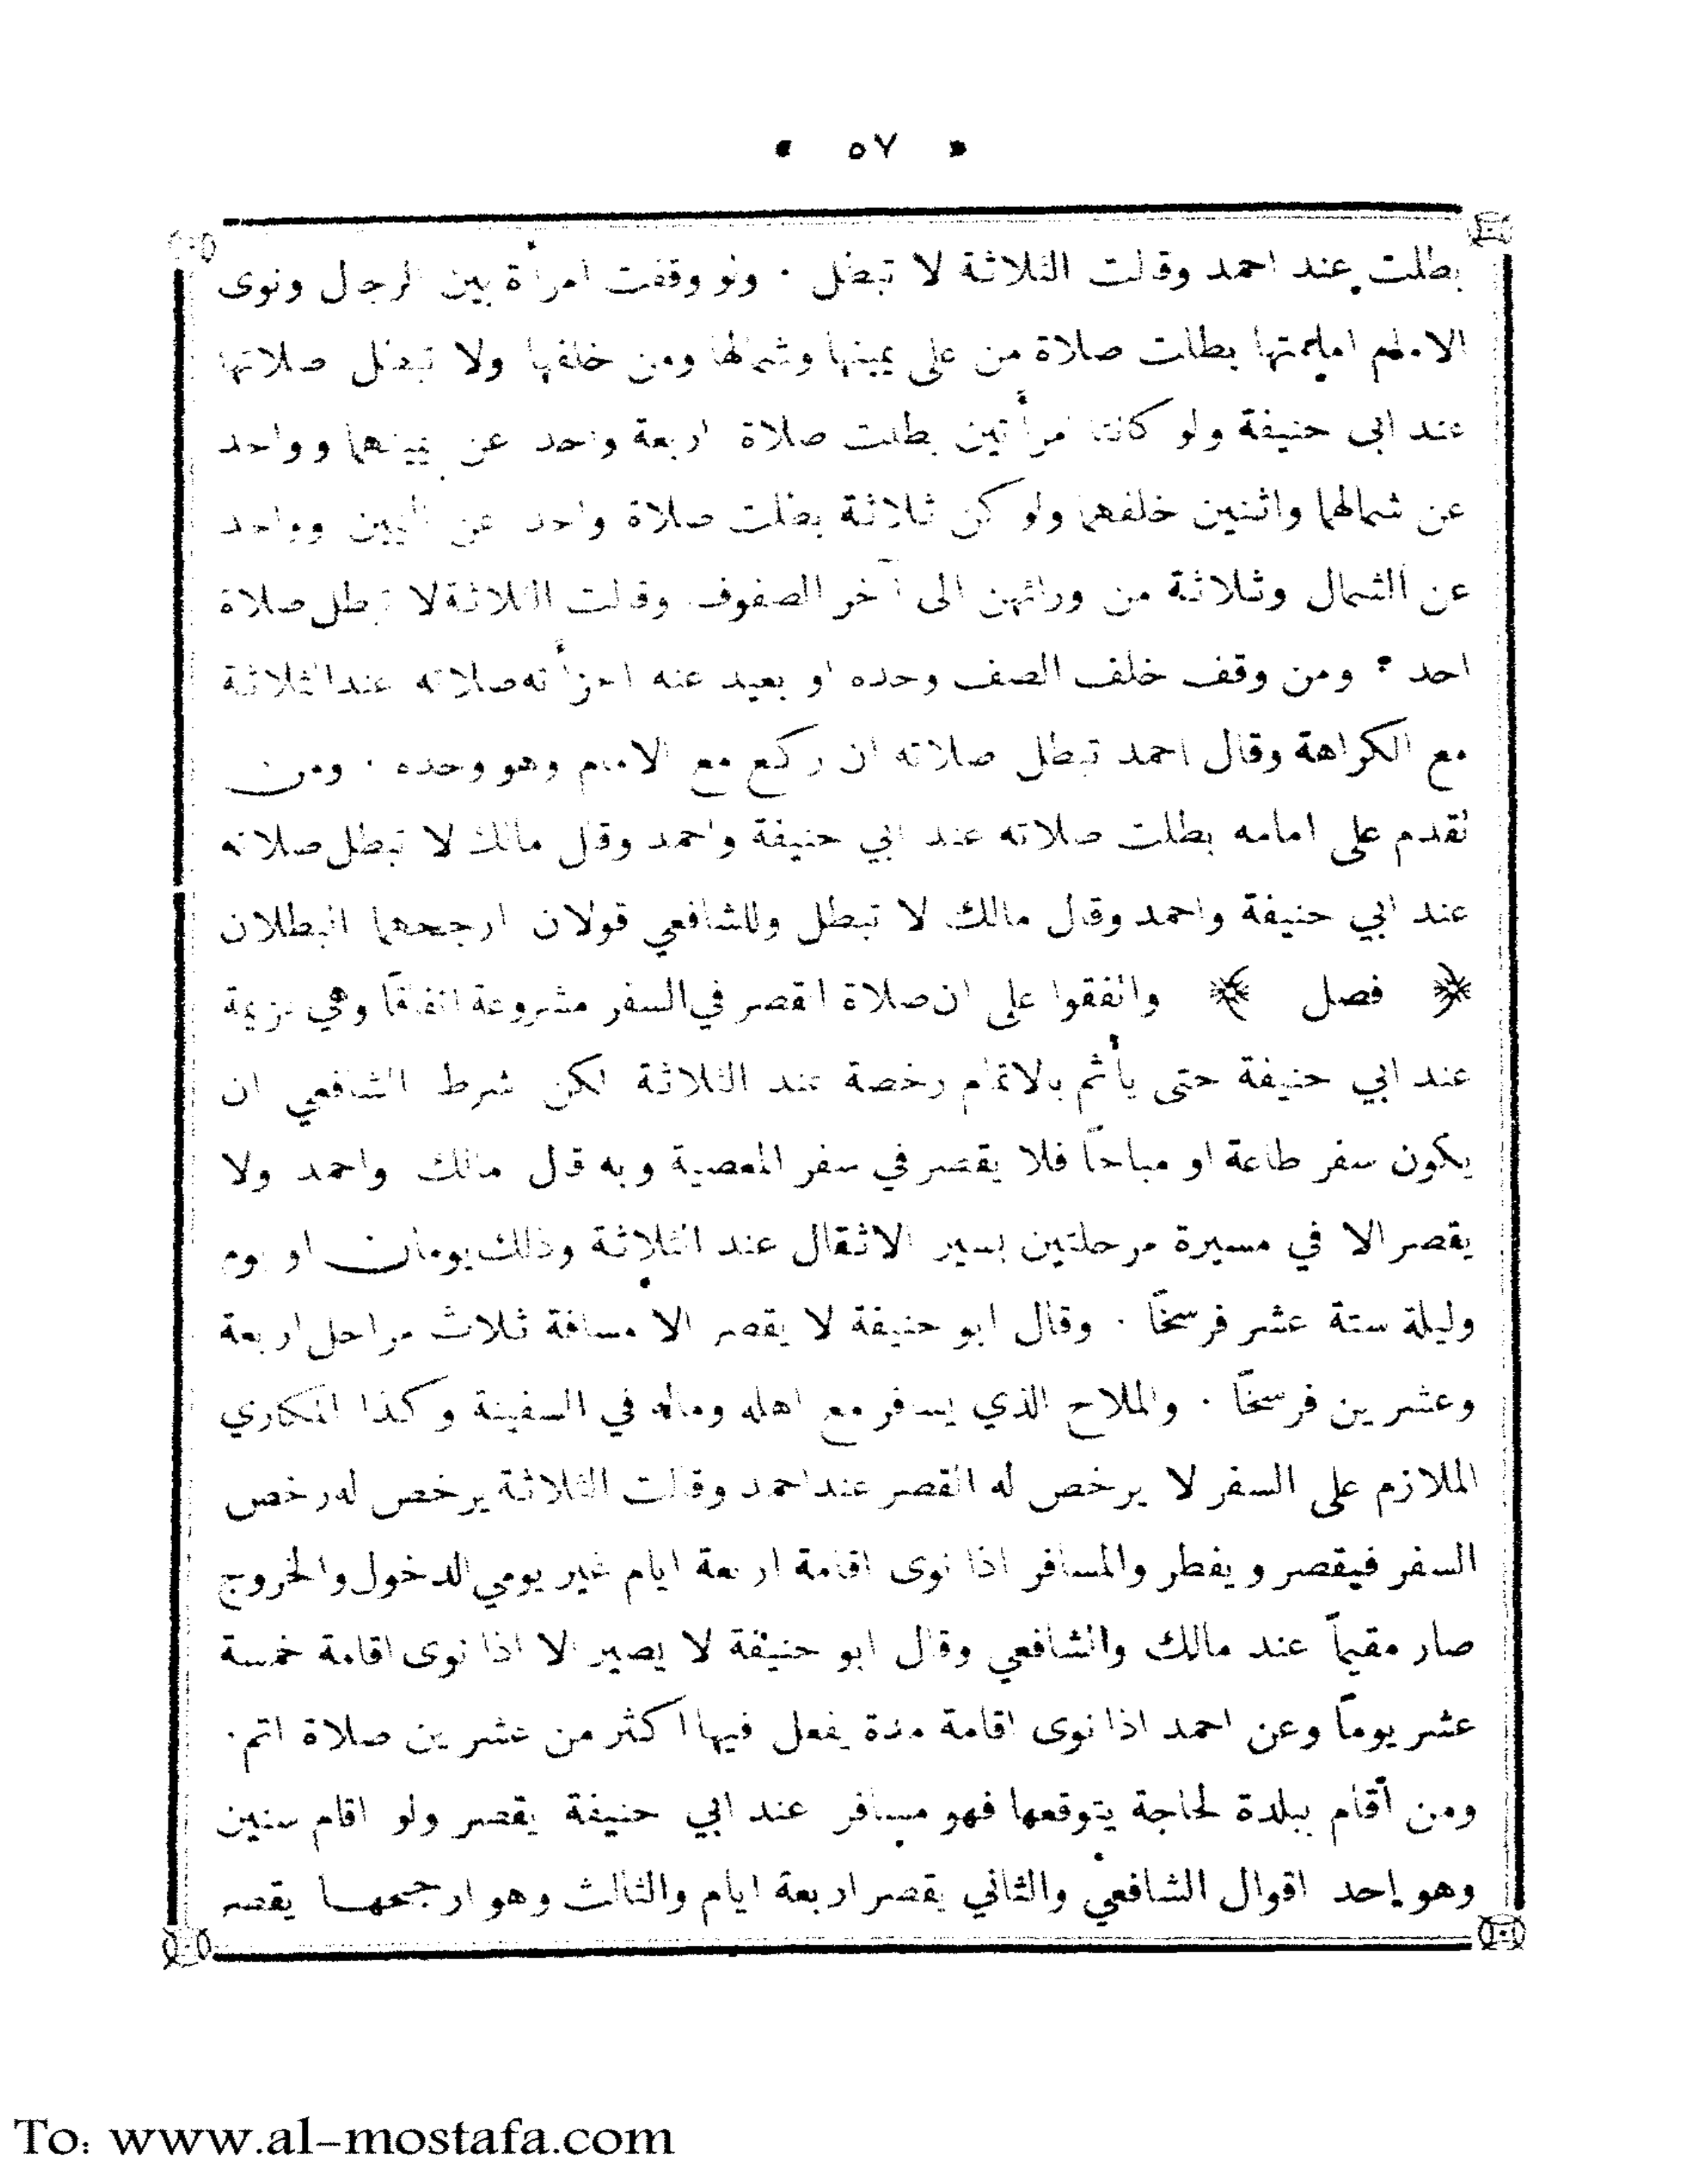 • ٥٧ •
بطلت عند احمد وقالت الثلاثة لا تبطل · ولو وقفت امرأة بين الرجال ونوى
الامام امامتها بطلت صلاة من على يمينها وشمالها ومن خلفها ولا تبطل صلاتها
عند ابى حنيفة ولو كانتا امرأتين بطلت صلاة اربعة واحد عن يمينهما وواحد
عن شمالهما واثنين خلفهما ولو كن ثلاثة بطلت صلاة واحد عن اليمين وواحد
عن الشمال وثلاثة من ورائهن الى آخر الصفوف وقالت الثلاثة لا تبطل صلاة
احد · ومن وقف خلف الصف وحده او بعيد عنه اجزأته صلاته عند الثلاثة
مع الكراهة وقال احمد تبطل صلاته ان ركع مع الامام وهو وحده · ومن
تقدم على امامه بطلت صلاته عند ابي حنيفة واحمد وقال مالك لا تبطل صلاته
عند ابي حنيفة واحمد وقال مالك لا تبطل وللشافعي قولان ارجحهما البطلان
﴿ فصل ﴾ واتفقوا على ان صلاة القصر في السفر مشروعة اتفاقاً وهي عزيمة
عند ابي حنيفة حتى يأثم بالاتمام رخصة عند الثلاثة لكن شرط الشافعي ان
يكون سفر طاعة او مباحاً فلا يقصر في سفر المعصية وبه قال مالك واحمد ولا
يقصر الا في مسيرة مرحلتين بسير الاثقال عند الثلاثة وذلك يومان او يوم
وليلة ستة عشر فرسخاً · وقال ابو حنيفة لا يقصر الا مسافة ثلاث مراحل اربعة
وعشرين فرسخاً · والملاح الذي يسافر مع اهله وماله في السفينة وكذا المكاري
الملازم على السفر لا يرخص له القصر عند احمد وقالت الثلاثة يرخص له رخص
السفر فيقصر ويفطر والمسافر اذا نوى اقامة اربعة ايام غير يومي الدخول والخروج
صار مقيماً عند مالك والشافعي وقال ابو حنيفة لا يصير الا اذا نوى اقامة خمسة
عشر يوماً وعن احمد اذا نوى اقامة مدة يفعل فيها اكثر من عشرين صلاة اتم ·
ومن أقام ببلدة لحاجة يتوقعها فهو مسافر عند ابي حنيفة يقصر ولو اقام سنين
وهو إحد اقوال الشافعي والثاني يقصر اربعة ايام والثالث وهو ارجحها يقصر
To: www.al-mostafa.com